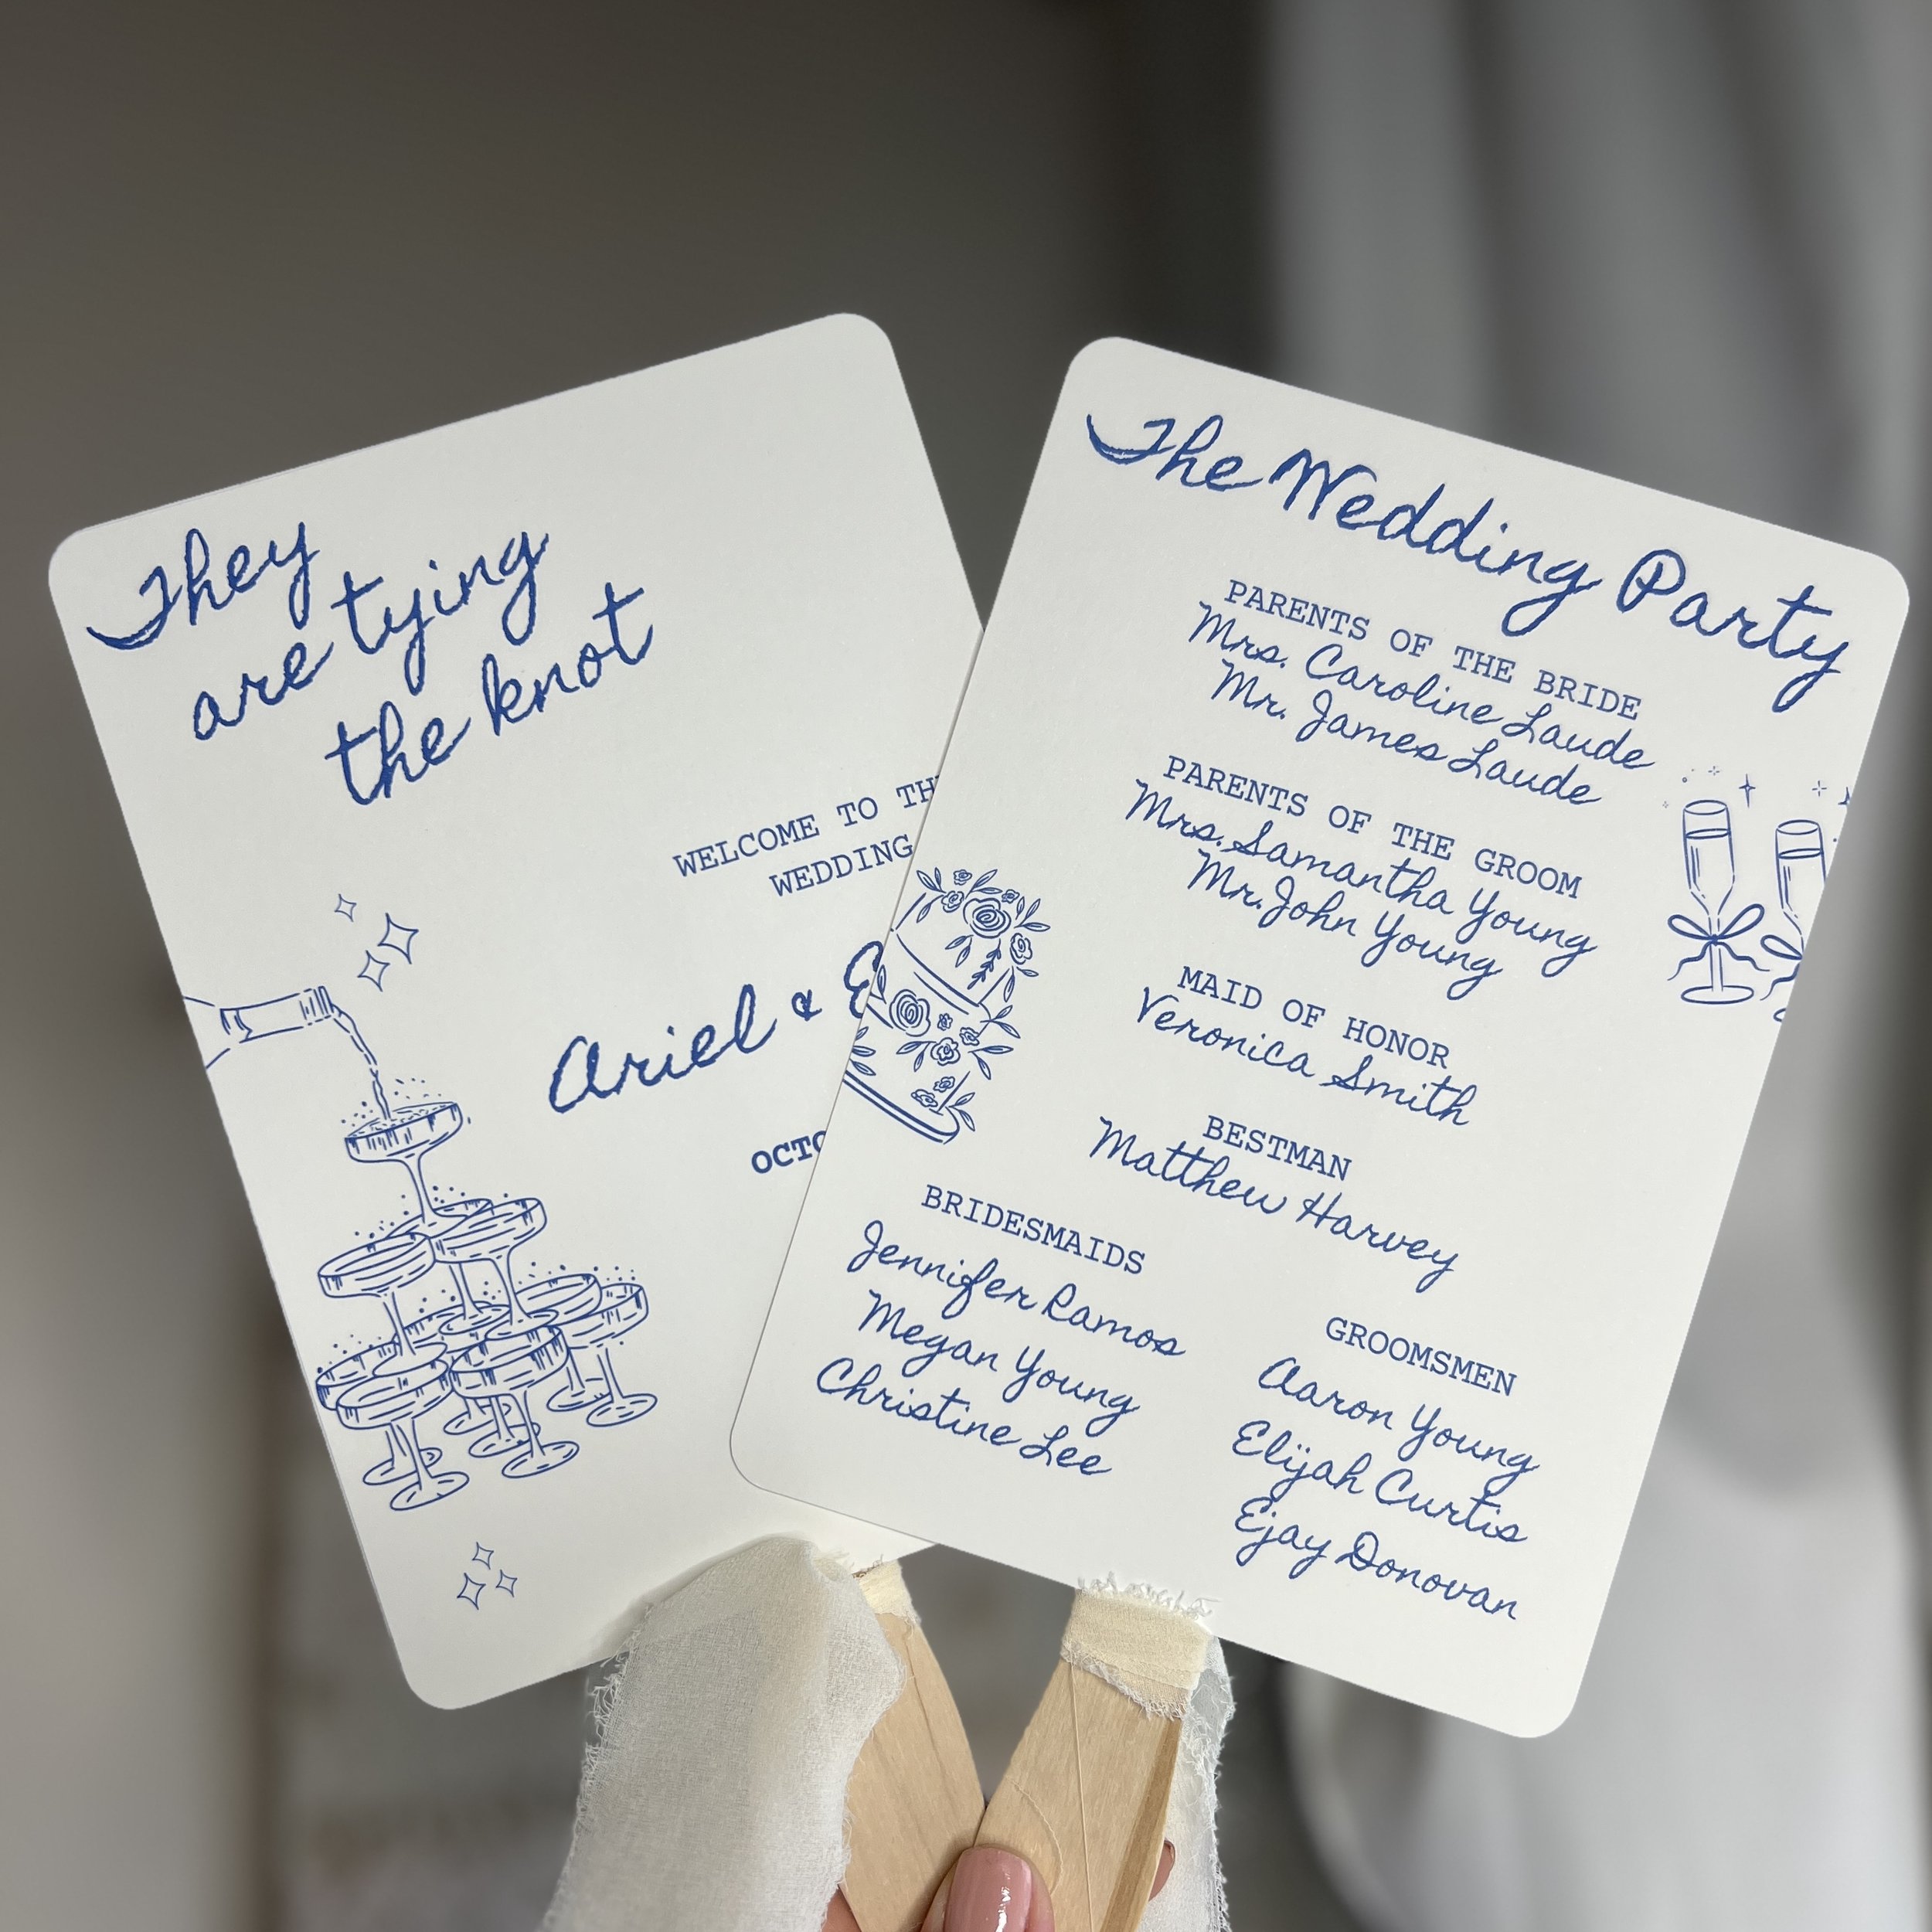 They
are tying
the knot
WELCOME TO
WEDDING
Ariel &
The Wedding Party
PARENTS OF THE BRIDE
Mrs. Caroline Laude
Mr. James Laude
PARENTS OF THE GROOM
Mrs. Samantha Young
Mr. John Young
MAID OF HONOR
Veronica Smith
BESTMAN
Matthew Harvey
BRIDESMAIDS
Jennifer Ramos
Megan Young
Christine Lee
GROOMSMEN
Aaron Young
Elijah Curtis
Ejay Donovan